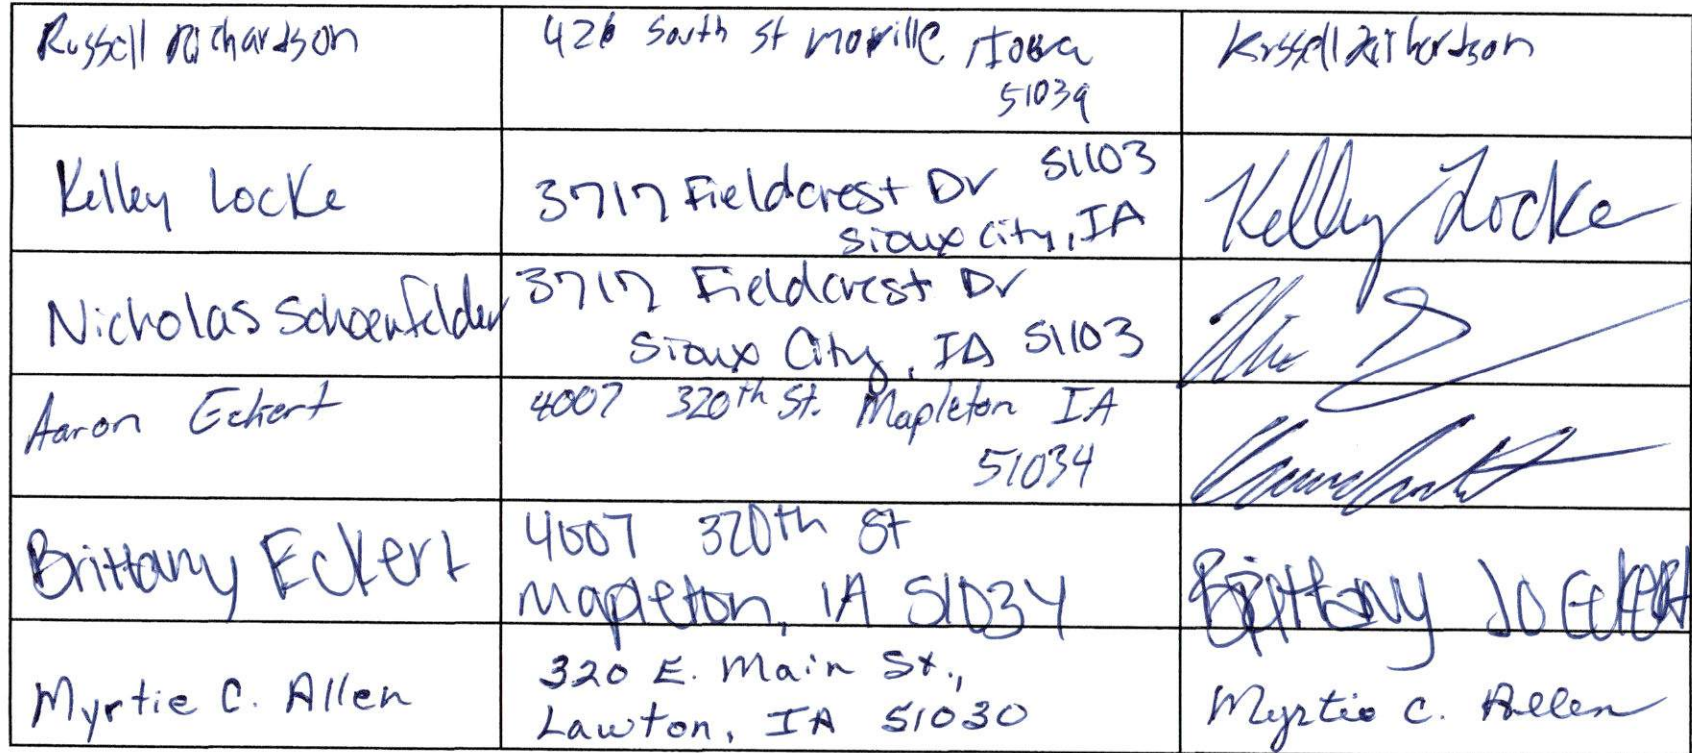 Russell Richardson
426 South St Moville, Iowa
51039
Russell Richardson
Kelley Locke
3717 Fieldcrest Dr 51103
Sioux City, IA
Kelley Locke
Nicholas Schoenfelder
3717 Fieldcrest Dr
Sioux City, IA 51103
Aaron Eckert
4007 320th St. Mapleton IA
51034
Brittany Eckert
4007 320th St
Mapleton, IA 51034
Brittany Jo Eckert
Myrtie C. Allen
320 E. Main St.,
Lawton, IA 51030
Myrtie C. Allen